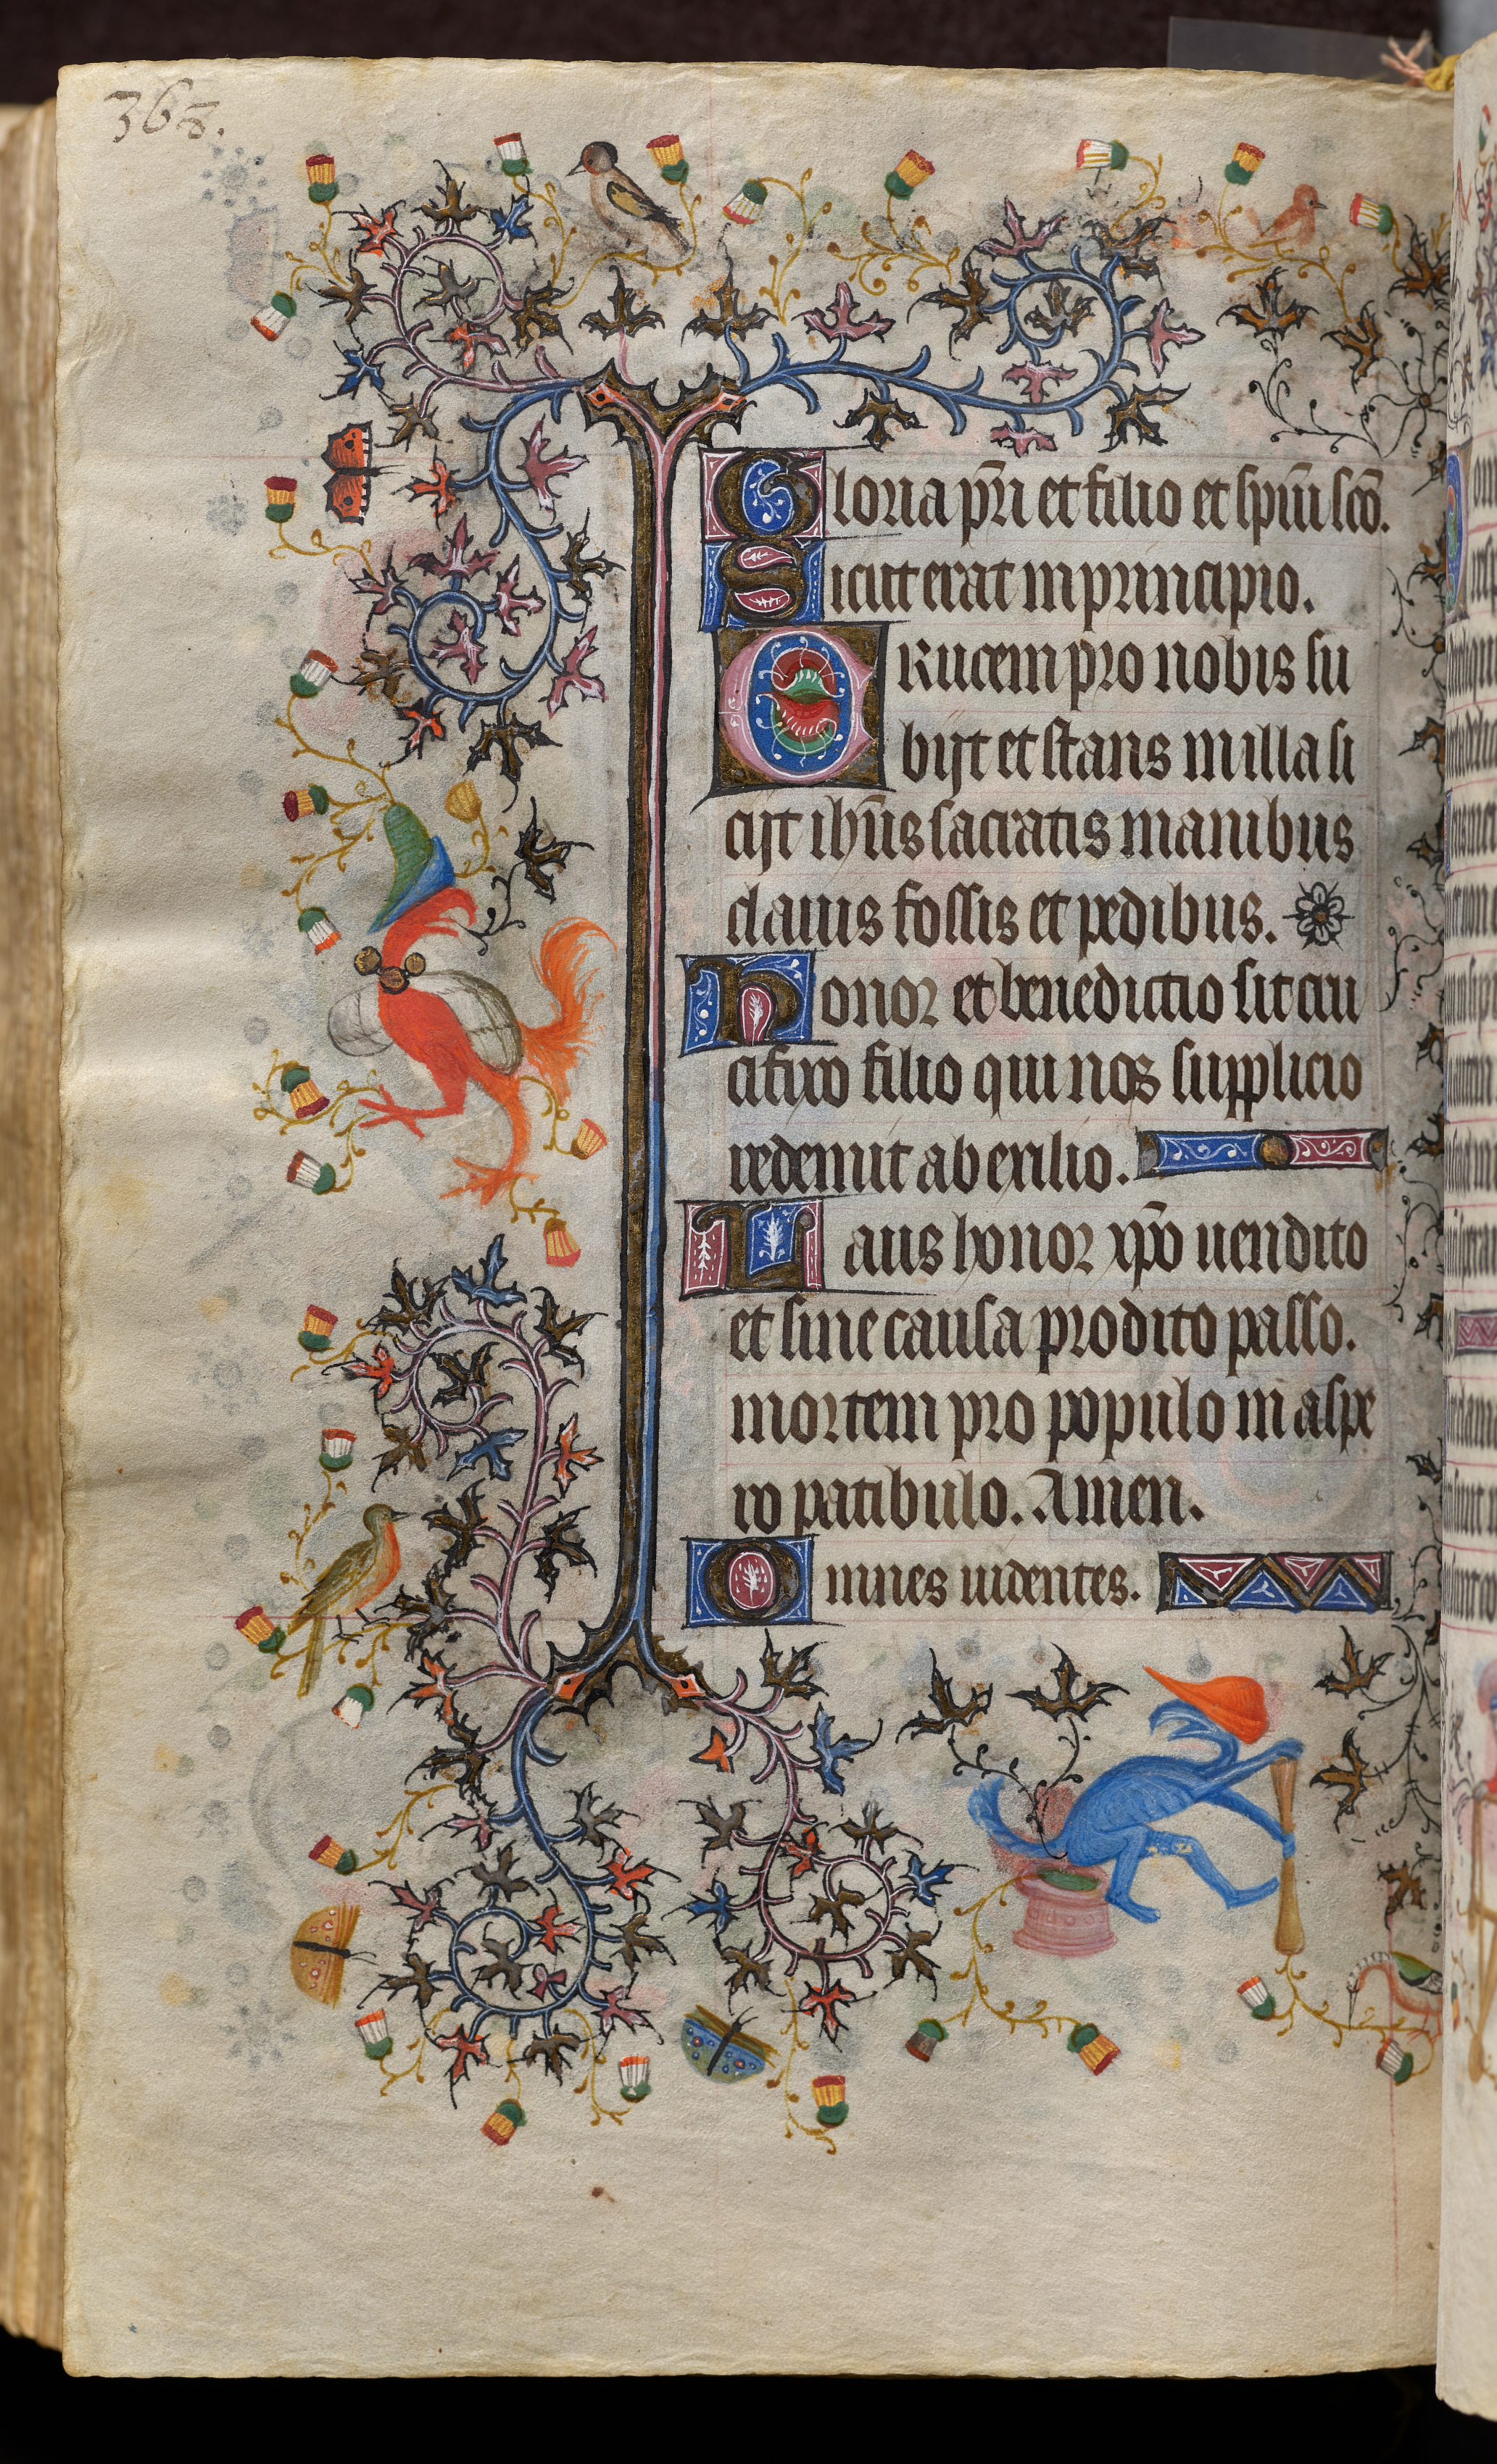 368.
Gloria pr̄i et filio et spiū scō.
Sicut erat in principio.
CRucem pro nobis su
bijt et stans in illa si
cijt ihūs sacratis manibus
clauis fossis et pedibus.
Honor et benedictio sit cru
cifixo filio qui nos supplicio
redemit ab exilio.
Laus honor xp̄o uendito
et sine causa prodito passo.
mortem pro populo in aspe
ro patibulo. Amen.
Omnes uidentes.